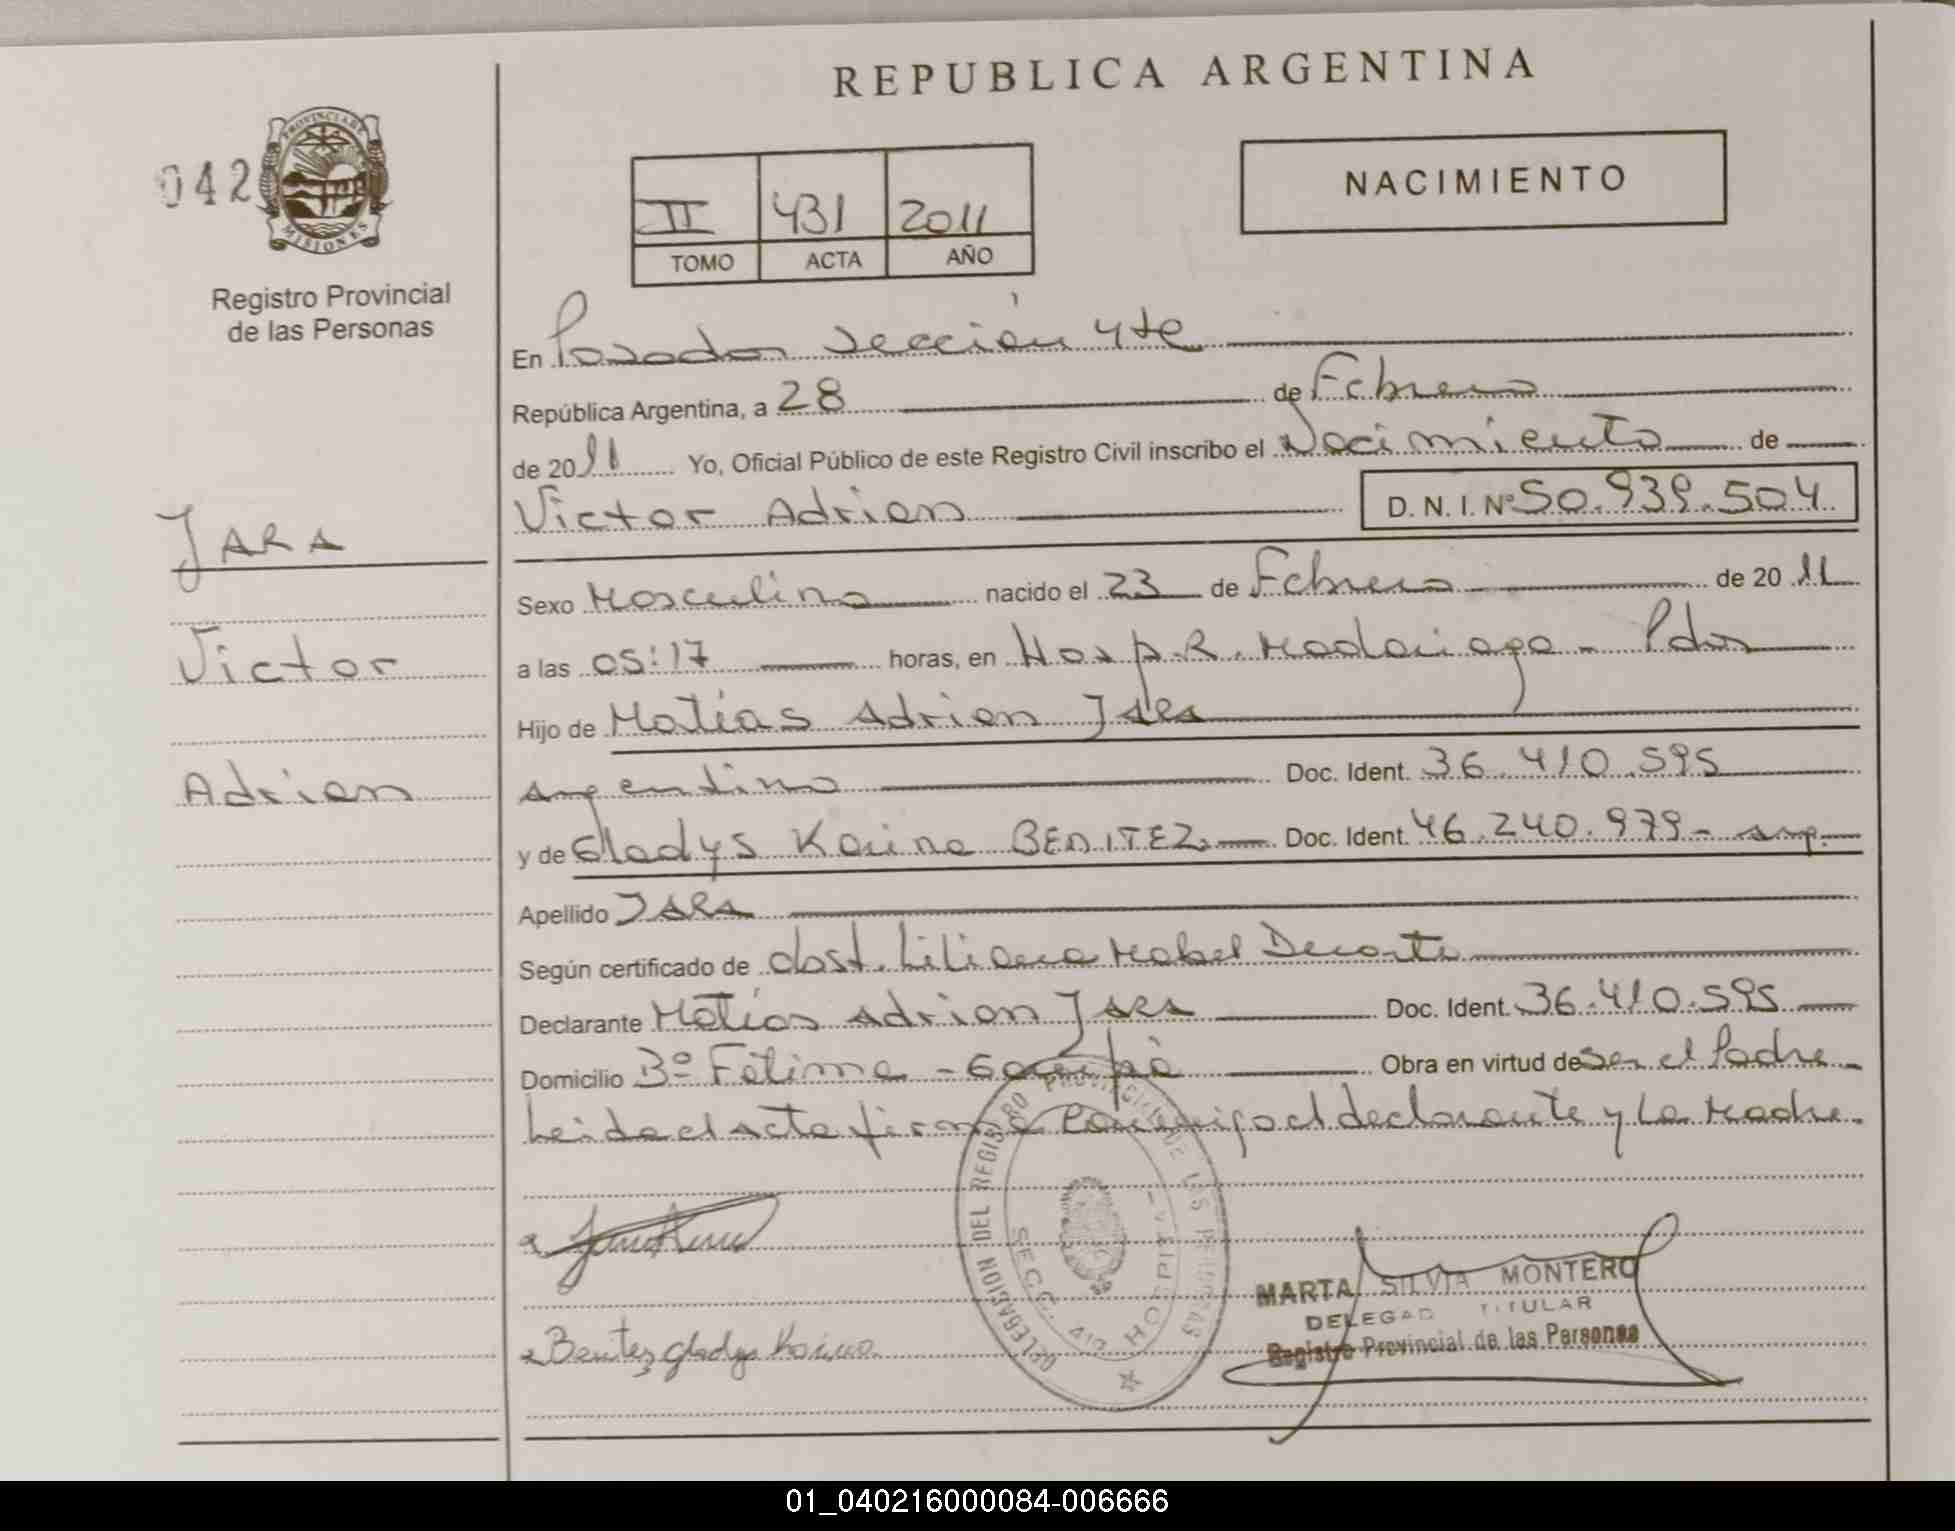 REPUBLICA ARGENTINA
042
PROVINCIA DE MISIONES
Registro Provincial
de las Personas
II 431 2011
TOMO ACTA AÑO
NACIMIENTO
En Posadas sección 4te
República Argentina, a 28 de Febrero
de 2011 Yo, Oficial Público de este Registro Civil inscribo el Nacimiento de
Victor Adrian D. N. I. Nº 50.939.504
JARA
Victor
Adrian
Sexo Masculino nacido el 23 de Febrero de 2011
a las 05:17 horas, en Hosp. R. Madariaga - Pdas
Hijo de Matías Adrian Jara
Argentino Doc. Ident. 36.410.595
y de Gladys Karina BENITEZ Doc. Ident. 46.240.979 - arg.
Apellido JARA
Según certificado de Obst. Liliana Mabel
Declarante Matías Adrian Jara Doc. Ident. 36.410.595
Domicilio Bº Fátima - Garupá Obra en virtud de ser el Padre
Leida el acta firma conmigo el declarante y la Madre.
DELEGACION DEL REGISTRO PROVINCIAL DE LAS PERSONAS
SECC. 4ta HOSPITAL
Benitez gladys Karina
MARTA SILVIA MONTERO
DELEGAD TITULAR
Registro Provincial de las Personas
01_040216000084-006666